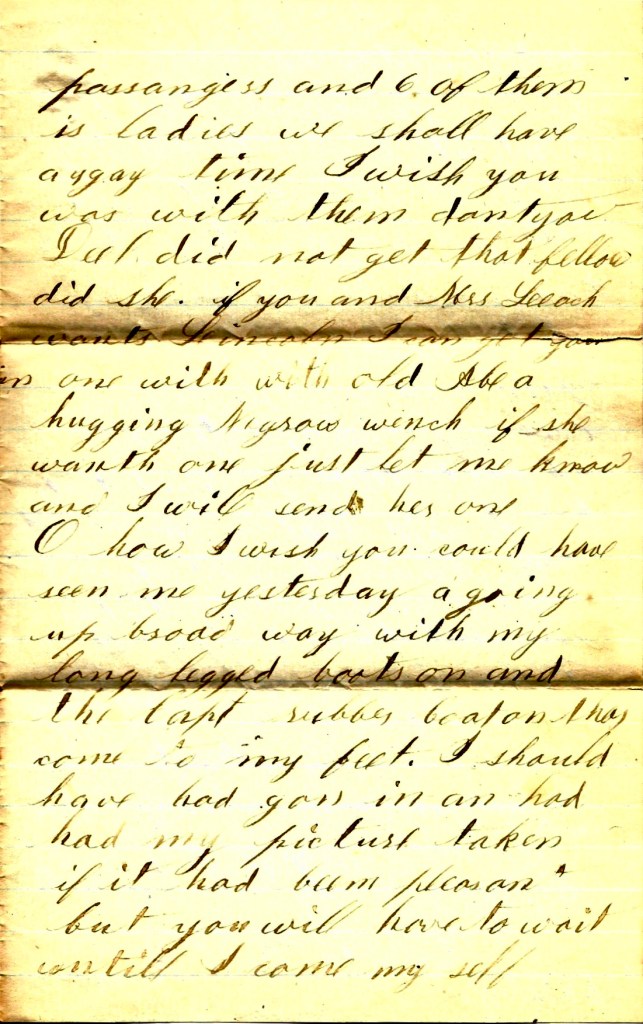 passangers and 6 of them
is ladies we shall have
a gay time I wish you
was with them dont you
did not get that fellow
did she. if you and Mrs Leeach
wants Leincoln I can get you
one with with old Abe a
hugging Nigrow wench if she
wanth one just let me know
and I will send her one
O how I wish you could have
seen me yesterday a going
up broad way with my
long legged boots on and
the Capt rubber coat on that
come to my feet. I should
have had gon in an had
had my picture taken
if it had been pleasant
but you will have to wait
untill I come my self